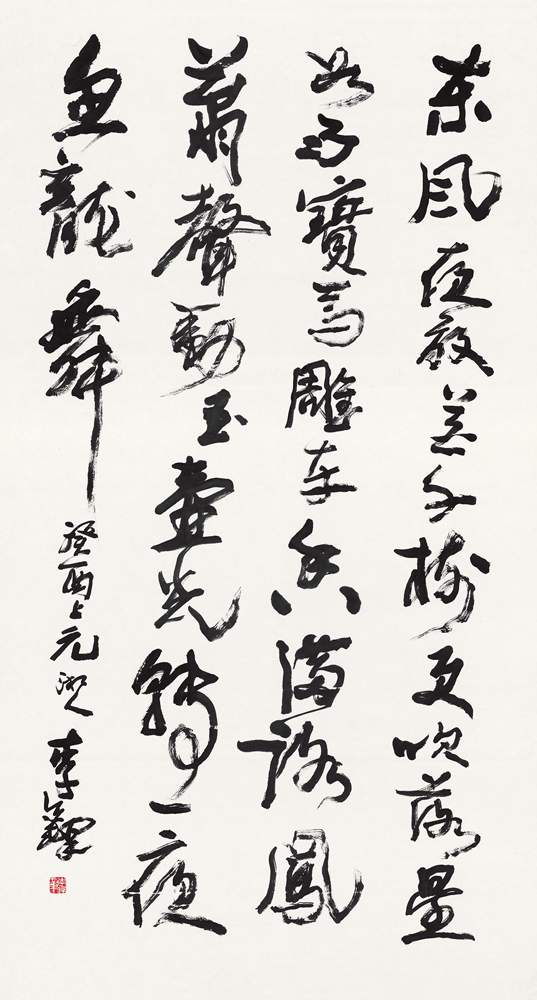 東風夜放花千樹更吹落星
如雨寶馬雕車香滿路鳳
簫聲動玉壺光轉一夜
魚龍舞 癸酉上元湘人李鐸